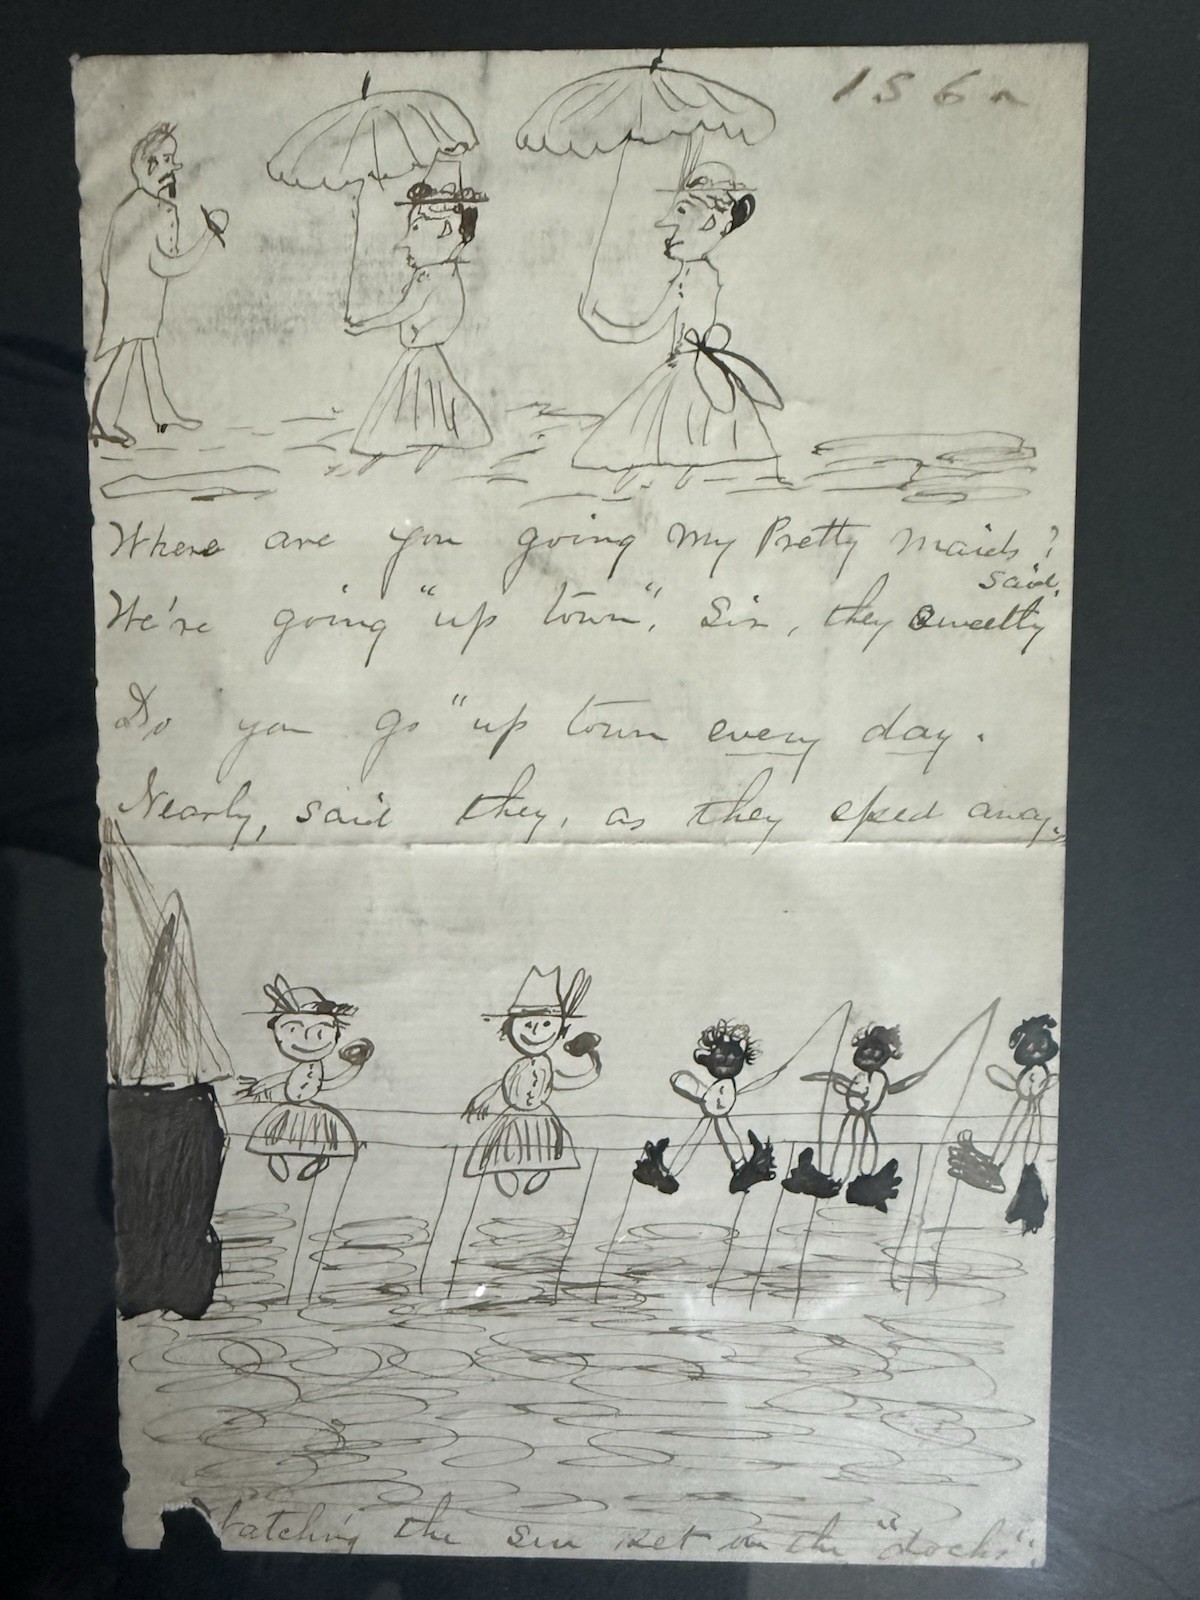 Where are you going My Pretty Maids?
said.
We're going "up town", Sir, they sweetly
Do you go "up town every day.
Nearly, said they, as they sped away.
Watching the sun set on the "docks".